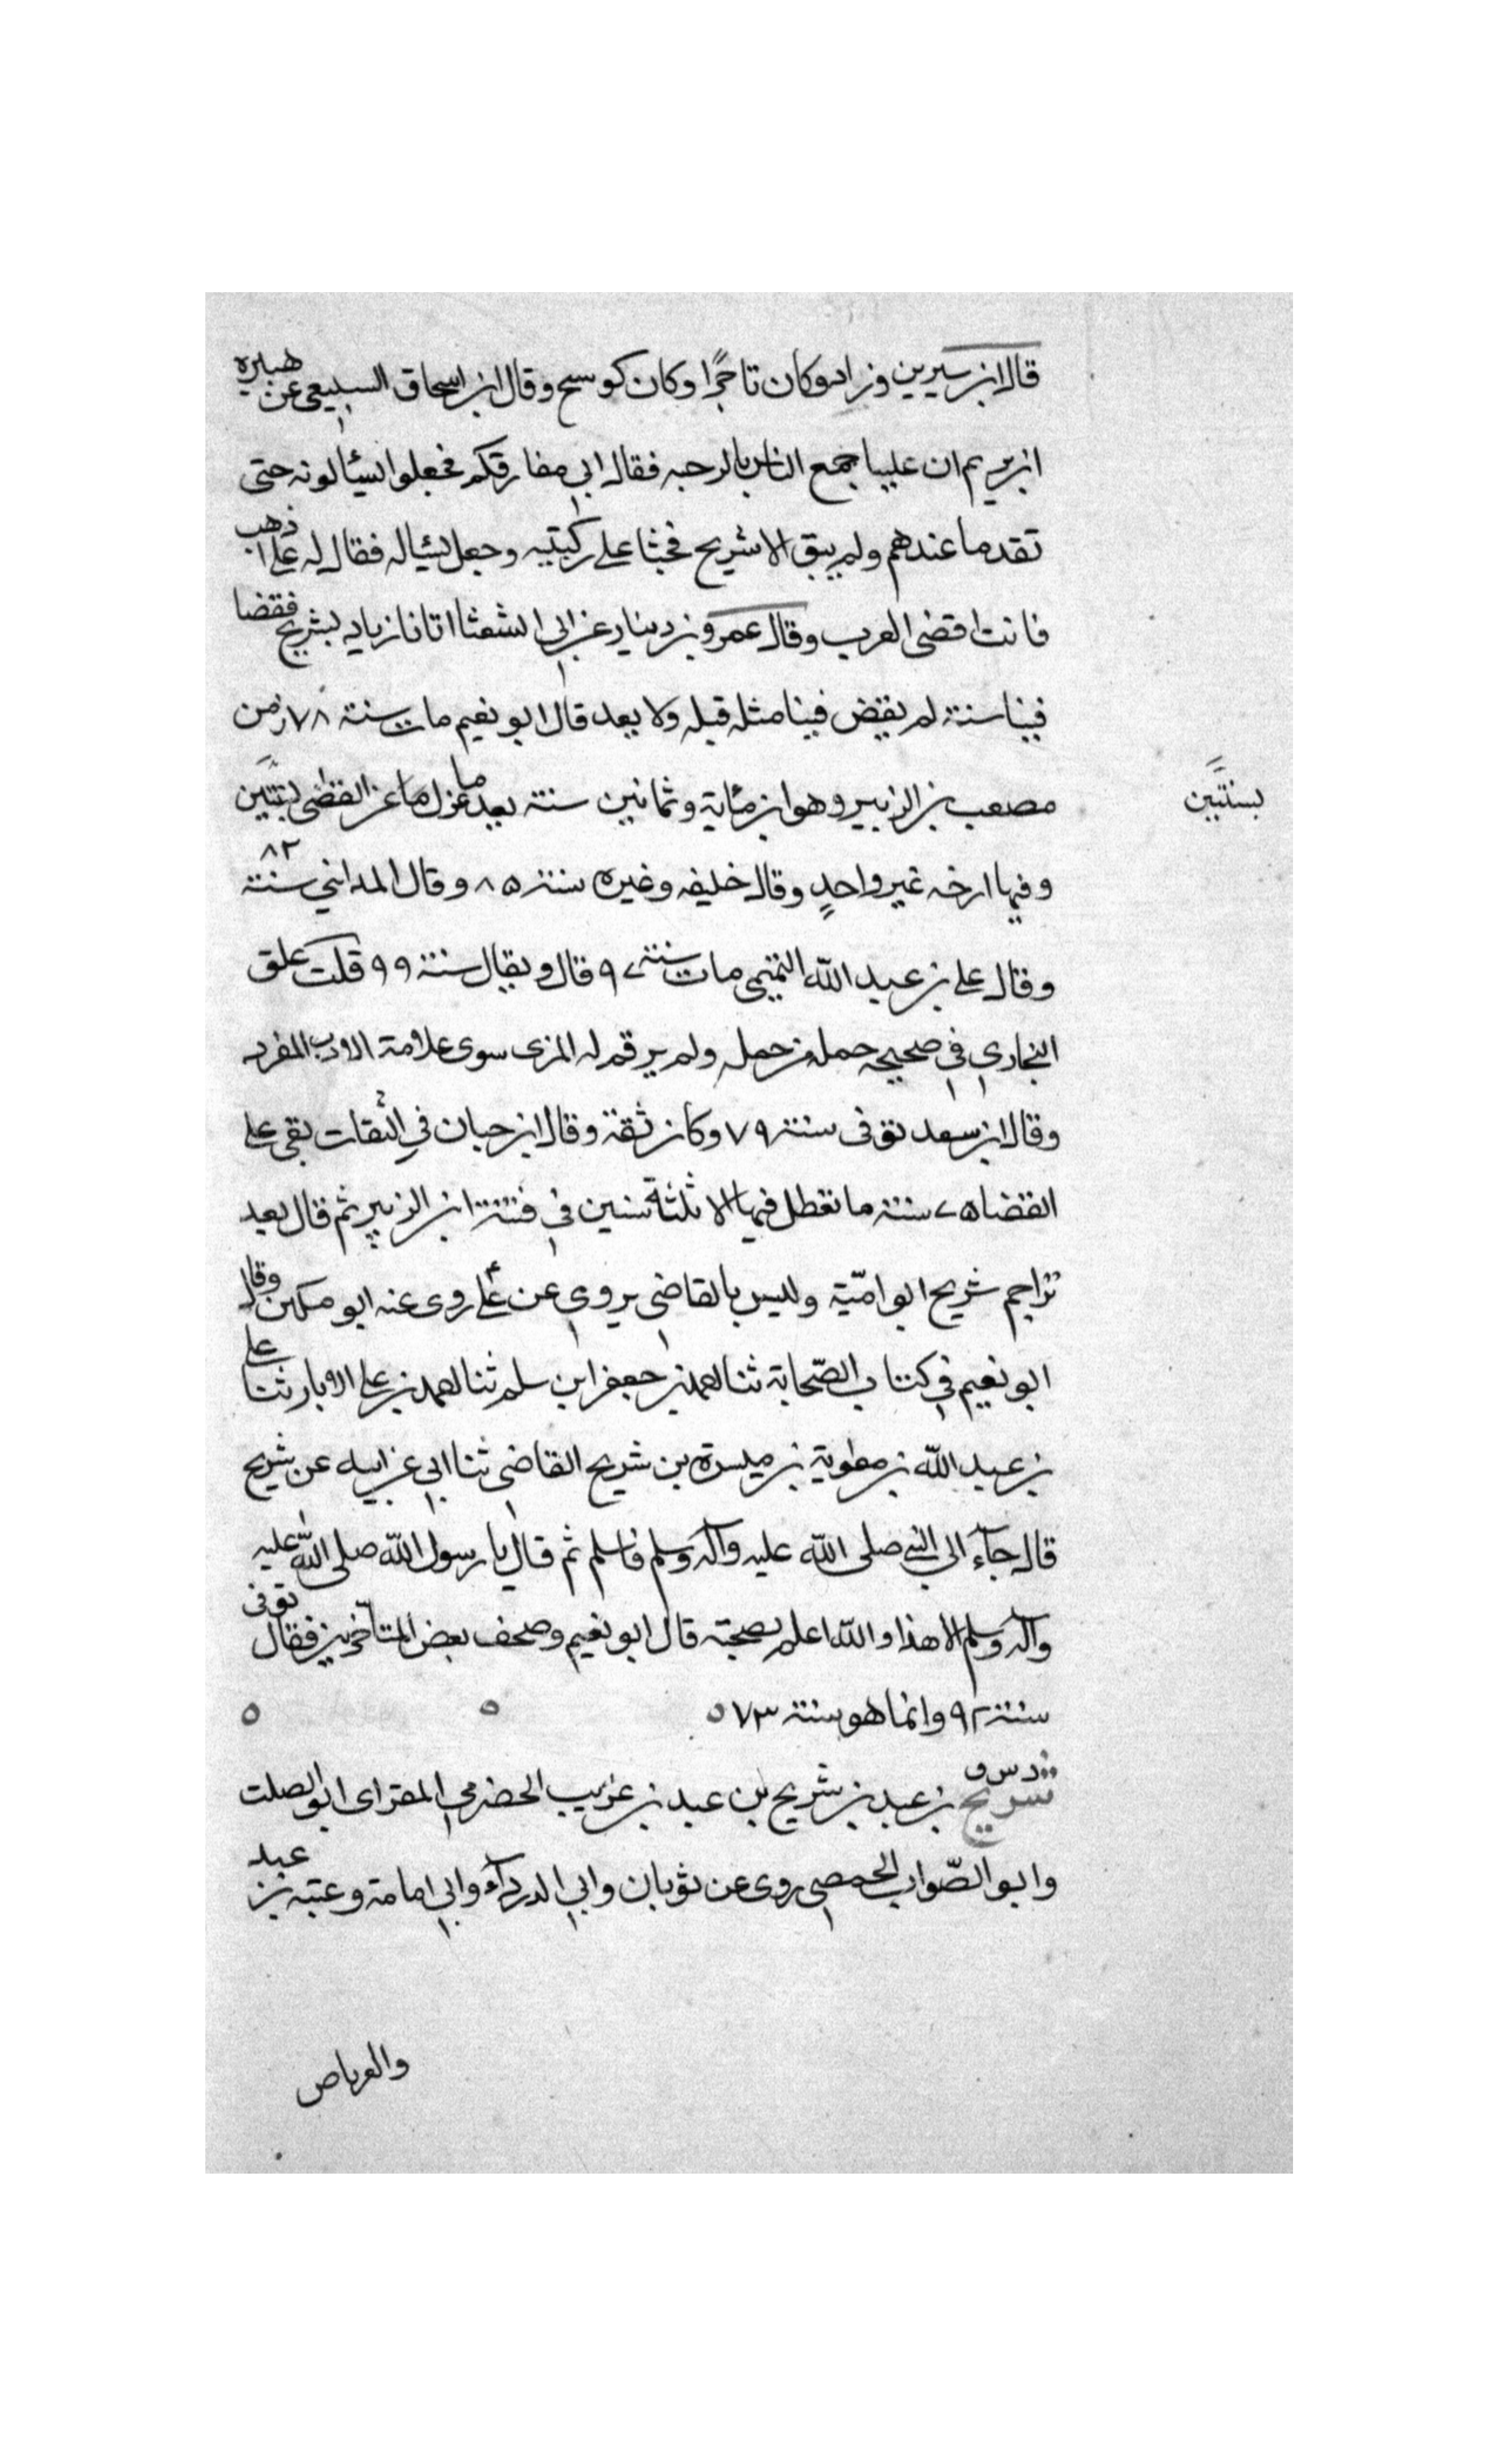 قال ابن سيرين وزاد وكان تاجرًا وكان كوسج وقال ابن اسحاق السبيعي عن هبيره
ابن يريم ان عليا جمع الناس بالرحبه فقال اني مفارقكم فجعلوا يسئالونه حتى
نفد ما عندهم ولم يبق الا شريح فجثا على ركبتيه وجعل يسئاله فقال له علي اذهب
فانت اقضى العرب وقال عمرو بن دينار عن ابي الشعثا اتانا زياد بشريح فقضا
فينا سنة لم يقض فينا مثله قبله ولا بعد قال ابو نعيم مات سنة ٧٨ زمن
مصعب بن الزبير وهو ابن مئاية وثمانين سنة بعد ما عزل ما عن القضى بسنتين
بسنتين
وفيها ارخه غير واحدٍ وقال خليفه وغيره سنة ٨٥ وقال المدايني سنة ٨٢
وقال علي بن عبد الله التميمي مات سنة ٩٧ قال ويقال سنة ٩٩ قلت علق
البخاري في صحيحه جملة من حمل ولم يرقم له المزي سوى علامة الادب المفرد
وقال ابن سعد توفى سنة ٧٩ وكان ثقة وقال ابن حبان في الثقات بقي على
القضا ٧٥ سنة ما تعطل فيها الا ثلثة سنين في فتنة ابن الزبير ثم قال بعد
تراجم شريح ابو اميّة وليس بالقاضي يروي عن علي روى عنه ابو مكين وقال
ابو نعيم في كتاب الصّحابة ثنا احمد بن جعفر ابن سلم ثنا احمد بن علي الابار ثنا علي
بن عبد الله بن معوية بن ميسرة بن شريح القاضي ثنا ابي عن ابيه عن شريح
قال جآء الى النبي صلى الله عليه وآله وسلم فاسلم ثم قال يا رسول الله صلى الله عليه
وآله وسلم الا هذا والله اعلم بصحته قال ابو نعيم وصحف بعض المتاخرين فقال توفى
سنة ٩٢ وانما هو سنة ٧٣ ٥ ٥ ٥
د س ق
شريح بن عبد بن شريح بن عبد بن عريب الحضرمي المقراى ابو الصلت
وابو الصّواب الحمصي روى عن ثوبان وابي الدردآء وابي امامة وعتبه بن عبد
والعرباض